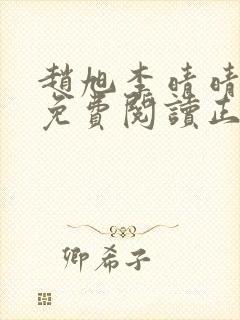 趙旭李晴晴
免費閱讀正
卿希子